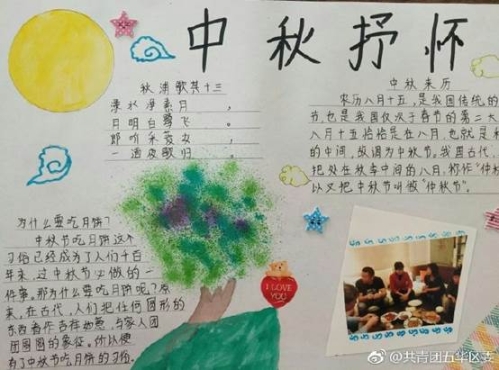 中秋抒怀
秋浦歌其十三
渌水净素月，
月明白鹭飞。
郎听采菱女，
一道夜歌归。
中秋来历
农历八月十五，是我国传统的
节，也是我国仅次于春节的第二大
八月十五恰恰是在八月，也就是秋
的中间，故谓为中秋节。我国古代
把处在秋季中间的八月，称作“仲秋
以又把中秋节叫做“仲秋节”。
为什么要吃月饼？
中秋节吃月饼这个
习俗已经成为了人们千百
年来，过中秋节必做的一
件事。那为什么要吃月饼呢？原
来，在古代，人们把任何圆形的
东西看作吉祥物，与家人团
团圆圆的象征。所以便
有了中秋节吃月饼的习俗。
I LOVE
YOU
@共青团五华区委